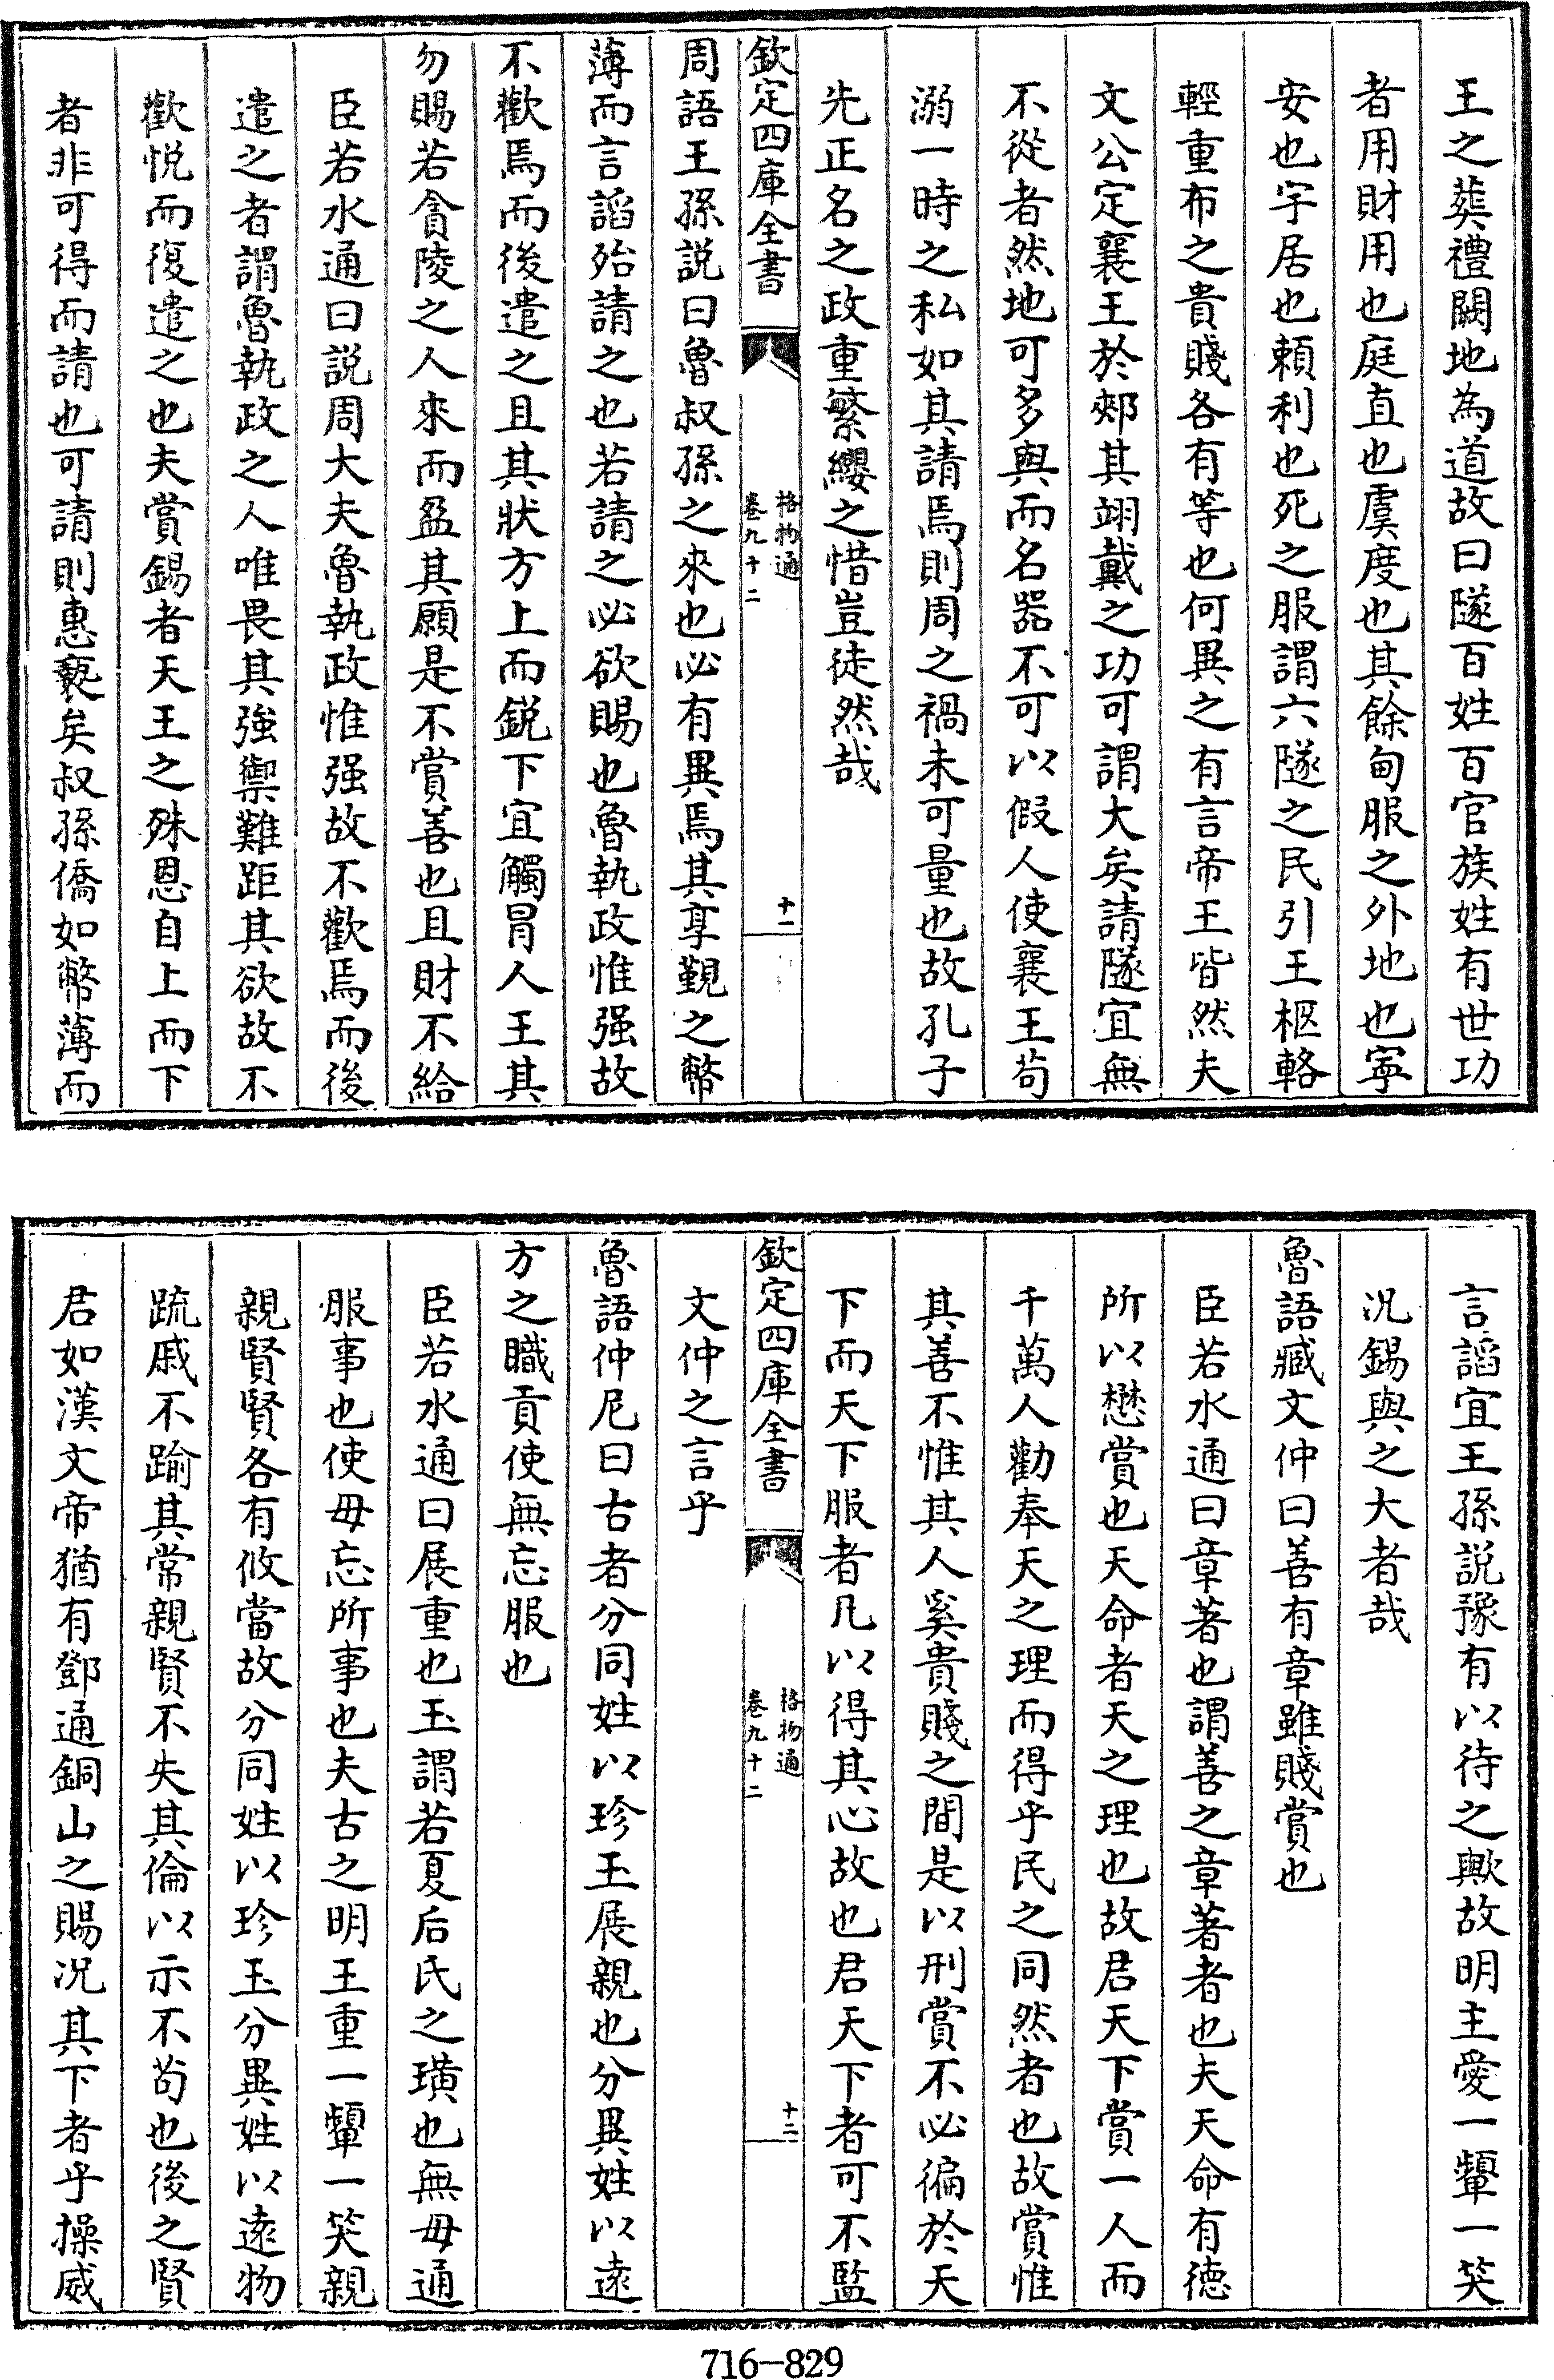 王之葬禮闕地為道故曰隧百姓百官族姓有世功
者用財用也庭直也虞度也其餘甸服之外地也寧
安也宇居也頼利也死之服謂六隧之民引王柩輅
輕重布之貴賤各有等也何異之有言帝王皆然夫
文公定襄王於郟其翊戴之功可謂大矣請隧宜無
不從者然地可多與而名器不可以假人使襄王苟
溺一時之私如其請焉則周之禍未可量也故孔子
先正名之政重繁纓之惜豈徒然哉
欽定四庫全書
格物通
卷九十二
十一
周語王孫説曰魯叔孫之來也必有異焉其享覲之幣
薄而言謟殆請之也若請之必欲賜也魯執政惟强故
不歡焉而後遣之且其狀方上而鋭下宜觸冒人王其
勿賜若貪陵之人來而盈其願是不賞善也且財不給
臣若水通曰説周大夫魯執政惟强故不歡焉而後
遣之者謂魯執政之人唯畏其強禦難距其欲故不
歡悦而復遣之也夫賞錫者天王之殊恩自上而下
者非可得而請也可請則惠褻矣叔孫僑如幣薄而
言謟宜王孫説豫有以待之歟故明主愛一顰一笑
况錫與之大者哉
魯語臧文仲曰善有章雖賤賞也
臣若水通曰章著也謂善之章著者也夫天命有德
所以懋賞也天命者天之理也故君天下賞一人而
千萬人勸奉天之理而得乎民之同然者也故賞惟
其善不惟其人奚貴賤之間是以刑賞不必徧於天
下而天下服者凡以得其心故也君天下者可不監
欽定四庫全書
格物通
卷九十二
十二
文仲之言乎
魯語仲尼曰古者分同姓以珍玉展親也分異姓以逺
方之職貢使無忘服也
臣若水通曰展重也玉謂若夏后氏之璜也無毋通
服事也使毋忘所事也夫古之明王重一顰一笑親
親賢賢各有攸當故分同姓以珍玉分異姓以逺物
疏戚不踰其常親賢不失其倫以示不苟也後之賢
君如漢文帝猶有鄧通銅山之賜况其下者乎操威
716-829